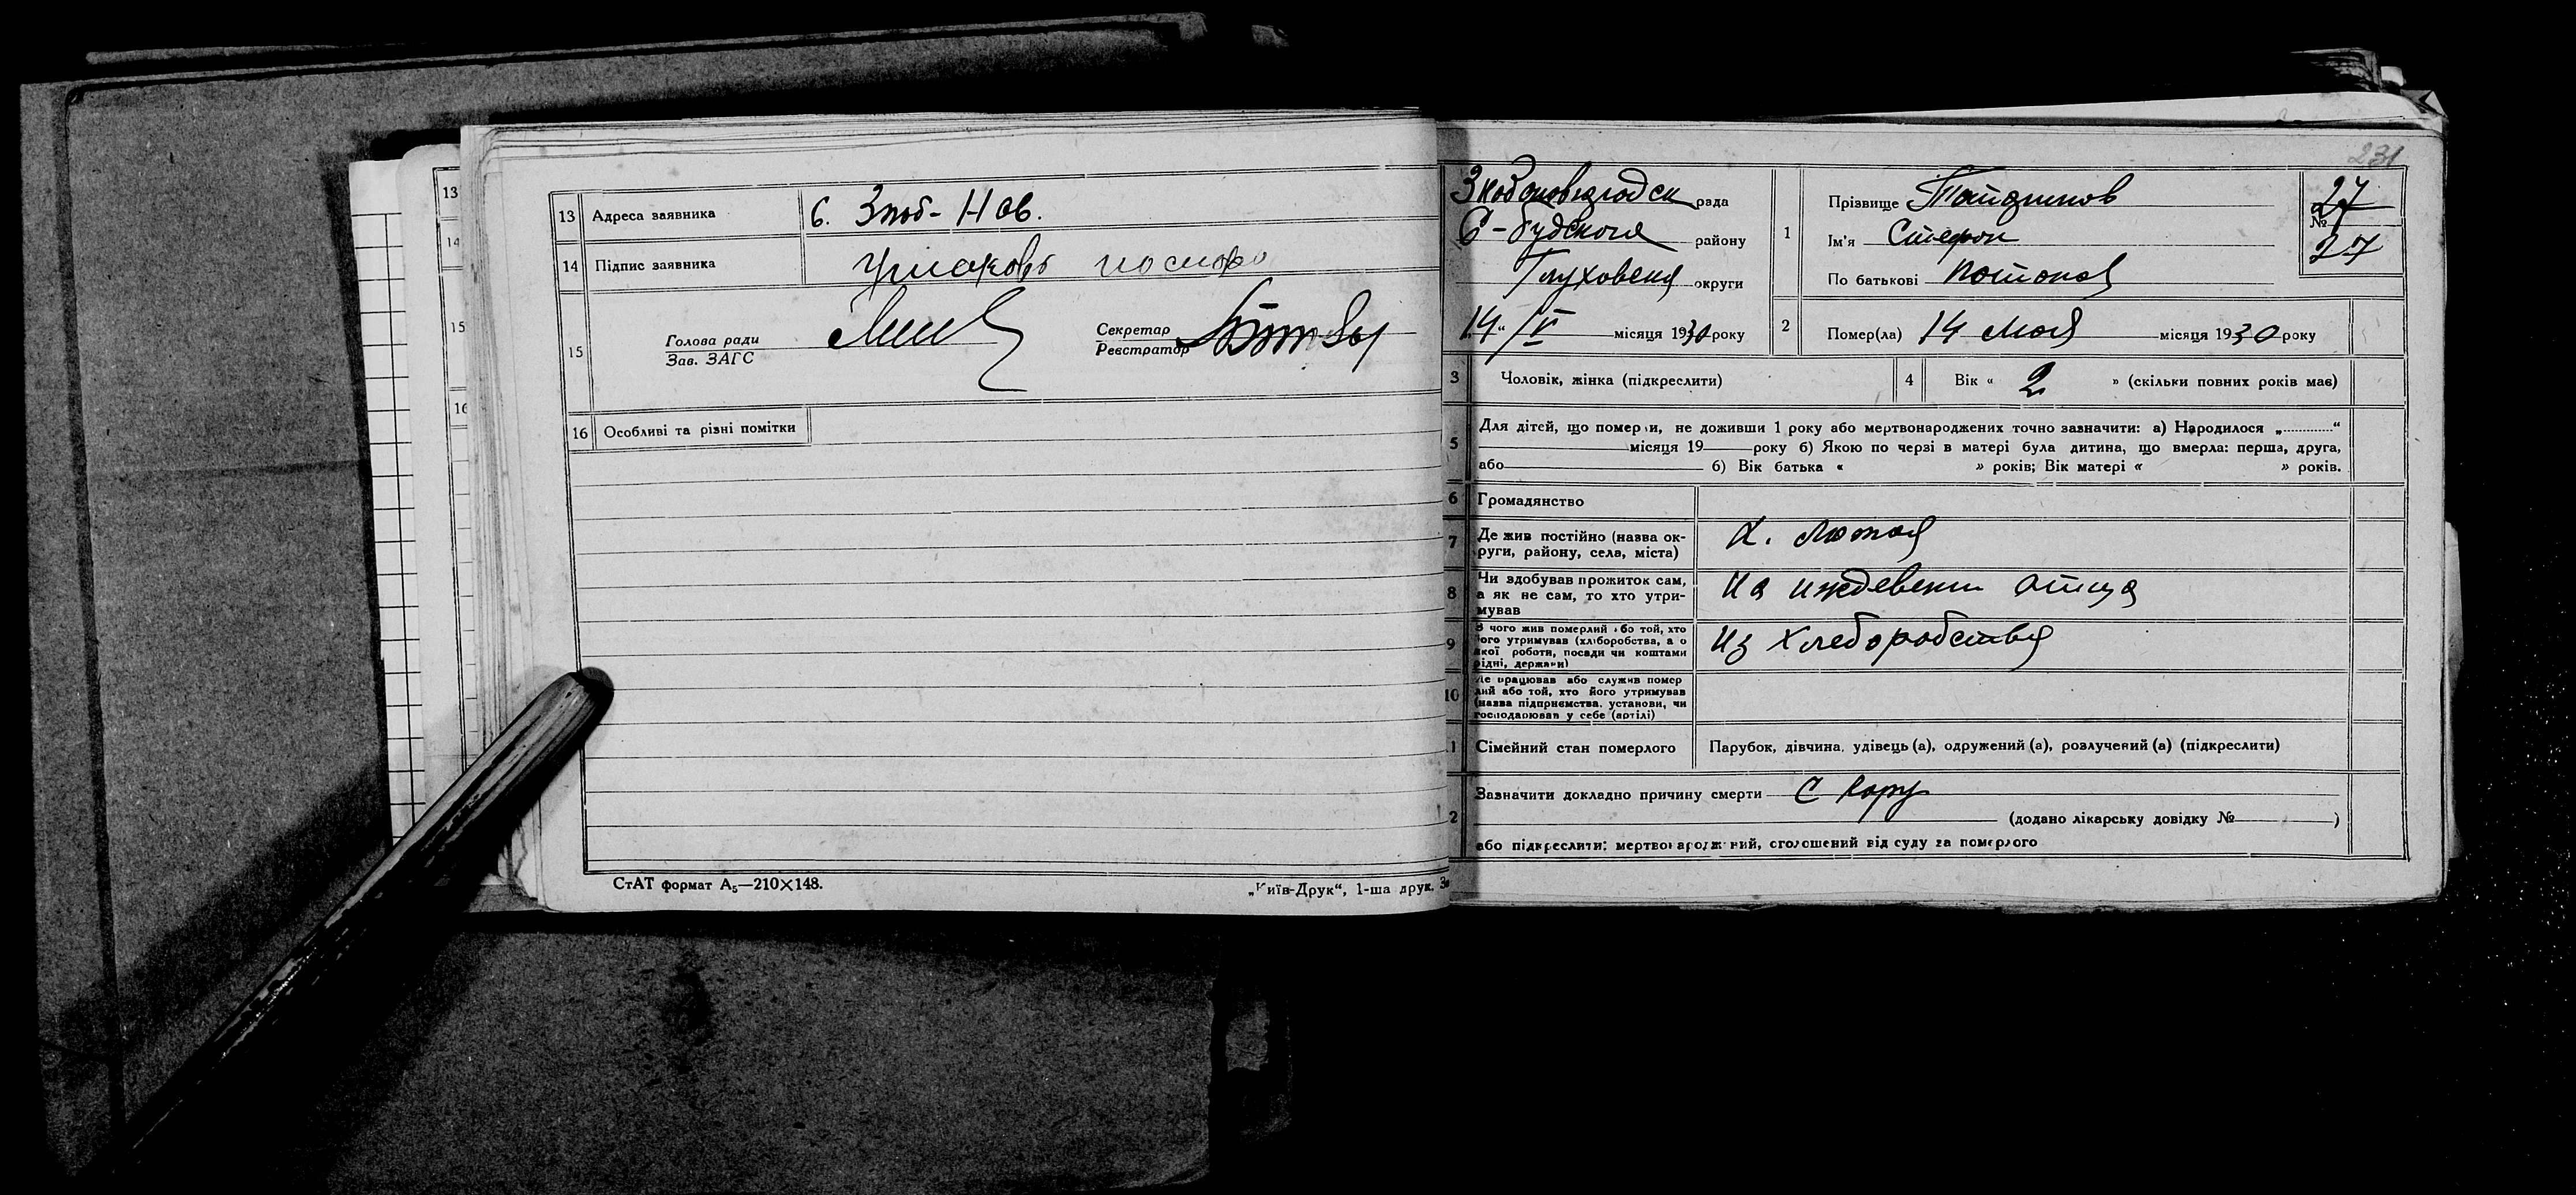 13 Адреса заявника С. Зноб-Нов.
14 Підпис заявника
15 Голова ради
Зав. ЗАГС
Секретар
Реєстратор
16 Особливі та різні помітки
СтАТ формат А₅—210×148.
„Київ-Друк“, 1-ша друк.
13
14
15
16
231
рада
С-Будского району
Глуховск округи
14 " / V місяця 1930 року
1 Прізвище
Ім'я Стефан
По батькові
№ 27
27
2 Помер(ла) 14 Мая місяця 1930 року
3 Чоловік, жінка (підкреслити)
4 Вік « 2 » (скільки повних років має)
5 Для дітей, що померли, не доживши 1 року або мертвонароджених точно зазначити: а) Народилося „............“
місяця 19 року б) Якою по черзі в матері була дитина, що вмерла: перша, друга,
або б) Вік батька « » років; Вік матері « » років.
6 Громадянство
7 Де жив постійно (назва округи, району, села, міста) х. Лютая
8 Чи здобував прожиток сам, а як не сам, то хто утримував На иждевении отца
9 З чого жив померлий або той, хто його утримував (хліборобства, а о якої роботи, посади чи коштами рідні, держави) Из хлеборобства
10 Де працював або служив померлий або той, хто його утримував (назва підприємства, установи, чи господарював у себе (артілі)
Сімейний стан померлого Парубок, дівчина, удівець (а), одружений (а), розлучений (а) (підкреслити)
Зазначити докладно причину смерти С кору
(додано лікарську довідку № )
або підкреслити: мертвонароджений, оголошений від суду за померлого